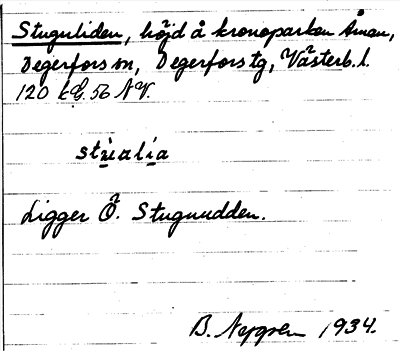 Stuguliden, höjd å kronoparken Åman,
Degerfors sn, Degerfors tg, Västerb. l.
120 kB. 56 NV.
stùalía
Ligger Ö. Stuguudden.
B. Nygren 1934.